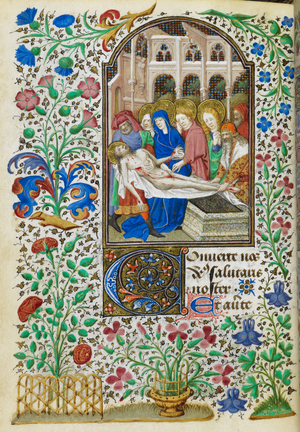 Converte nos
deus salutaris
noster
Et averte